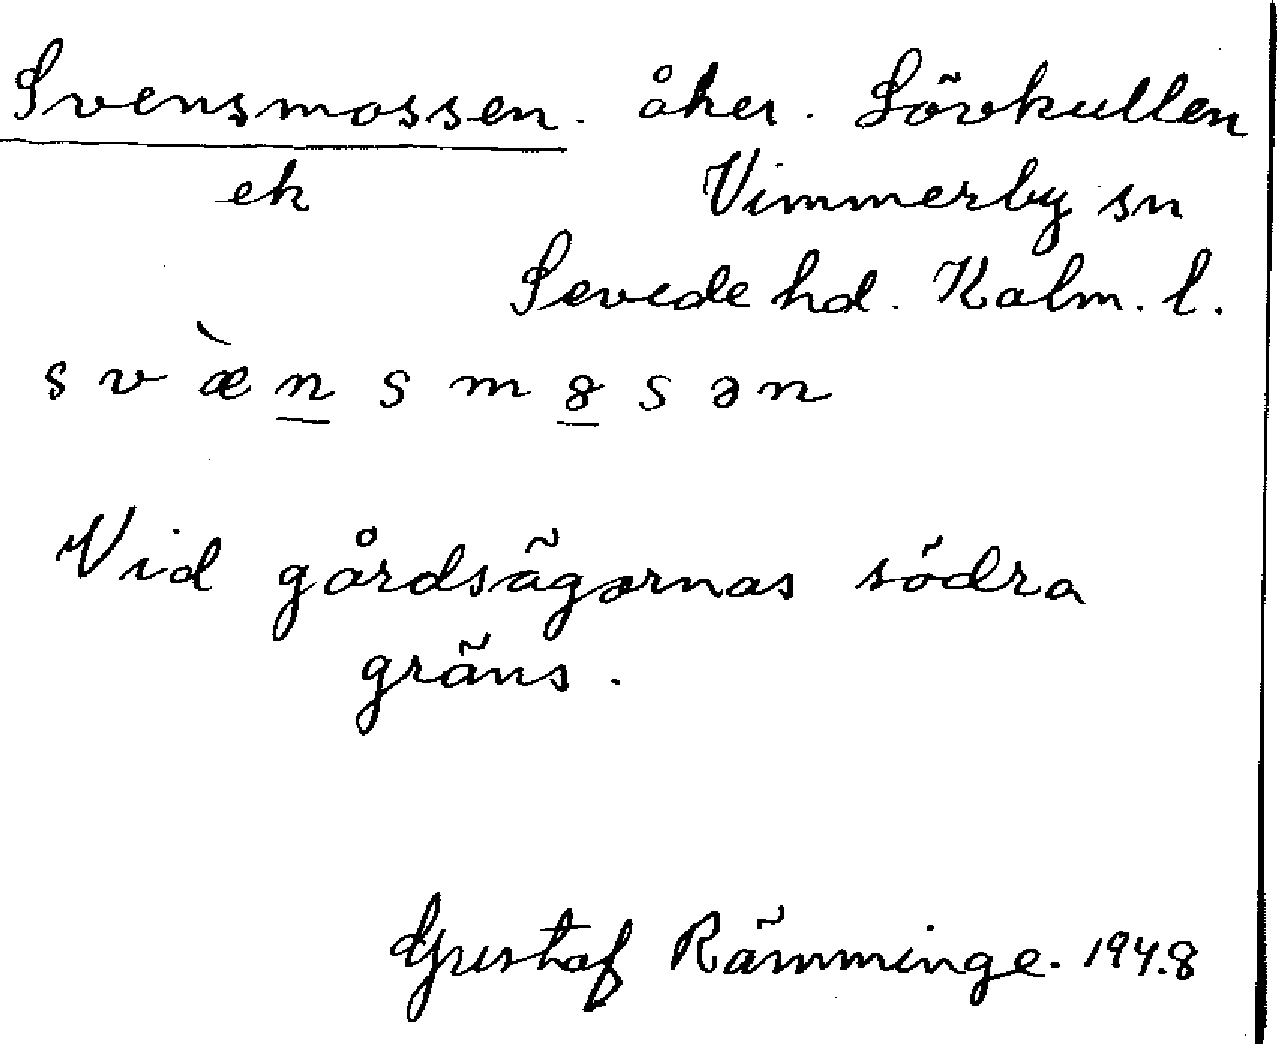 Svensmossen. åker. Lövkullen
ek Vimmerby sn
Sevede hd. Kalm. l.
s v æ̀ n s m 8 s ə n
Vid gårdsägornas södra
gräns.
Gustaf Rämminge. 1948